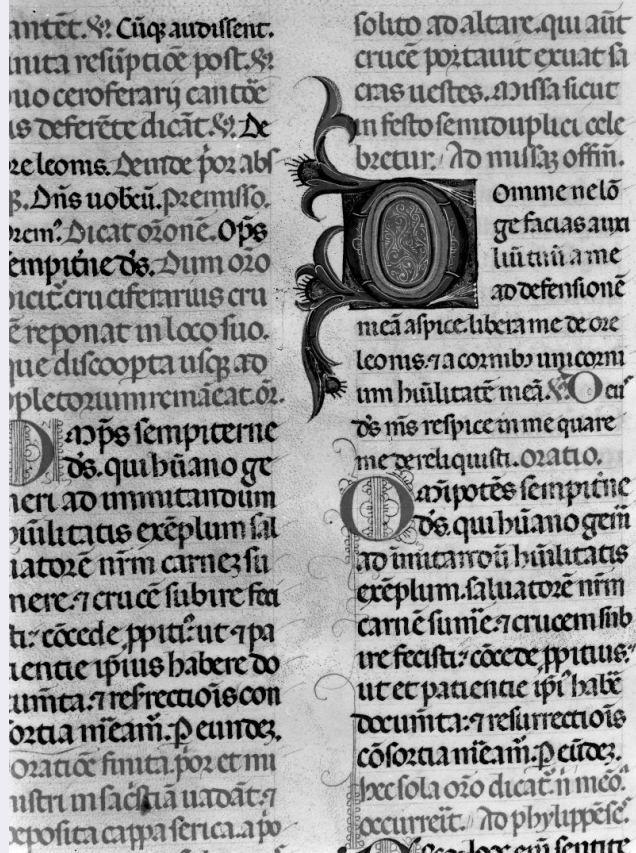 antēt. ℣. Cūq̄ audissent.
inita resūptiōe post. ℣.
uo ceroferarij cantōe
is deferēte dicāt. ℣. De
re leonis. Deinde p̄or abs
Dn̄s uobcū. Premisso.
Dicat orōnē. Op̄s
empit̄ne d̄s. Dum orō
icit̄. cruciferarius cru
ē reponat in loco suo.
que discoop̄ta usq̄ ad
pletorium remāeat. or̄.
Om̄ps sempiterne
d̄s. qui hūano ge
neri ad imitandum
hūilitatis exēplum sal
uatorē nr̄m carnez su
mere. ⁊ crucē subire feci
sti: cōcede ꝓpiti⁹: ut ⁊ pa
tientie ip̄ius habere do
cumt̄a. ⁊ resrrectiōis con
sortia m̄eam̄. P eundez.
oratiōe finita. p̄or et mi
nistri in sac̄stiā uadāt. ⁊
deposita cappa serica. a p̄o
solito ad altare. qui aūt
crucē portauit exuat sa
cras uestes. Missa sicut
in festo semiduplici cele
bretur. Ad missaz offin̄.
Domine ne lō
ge facias auxi
liū tuū a me
ad defensionē
meā aspice. libera me de ore
leonis. ⁊ a cornib⁹ unicorni
um hūilitatē meā. ℣. De⁹
d̄s m̄s respice in me quare
me dereliquisti. oratio.
Om̄ipotēs sempit̄ne
d̄s. qui hūano gen̄i
ad imitandū hūilitatis
exēplum. saluatorē nr̄m
carnē sum̄e. ⁊ crucem sub
ire fecisti: cōcede ꝓpitius:
ut et patientie ip̄i⁹ habē
documt̄a: ⁊ resurrectiōis
cōsortia m̄eam̄. P eūdez.
hec sola orō dicat̄. n̄ m̄eō.
occurreīt. Ad phylippēse⁹.